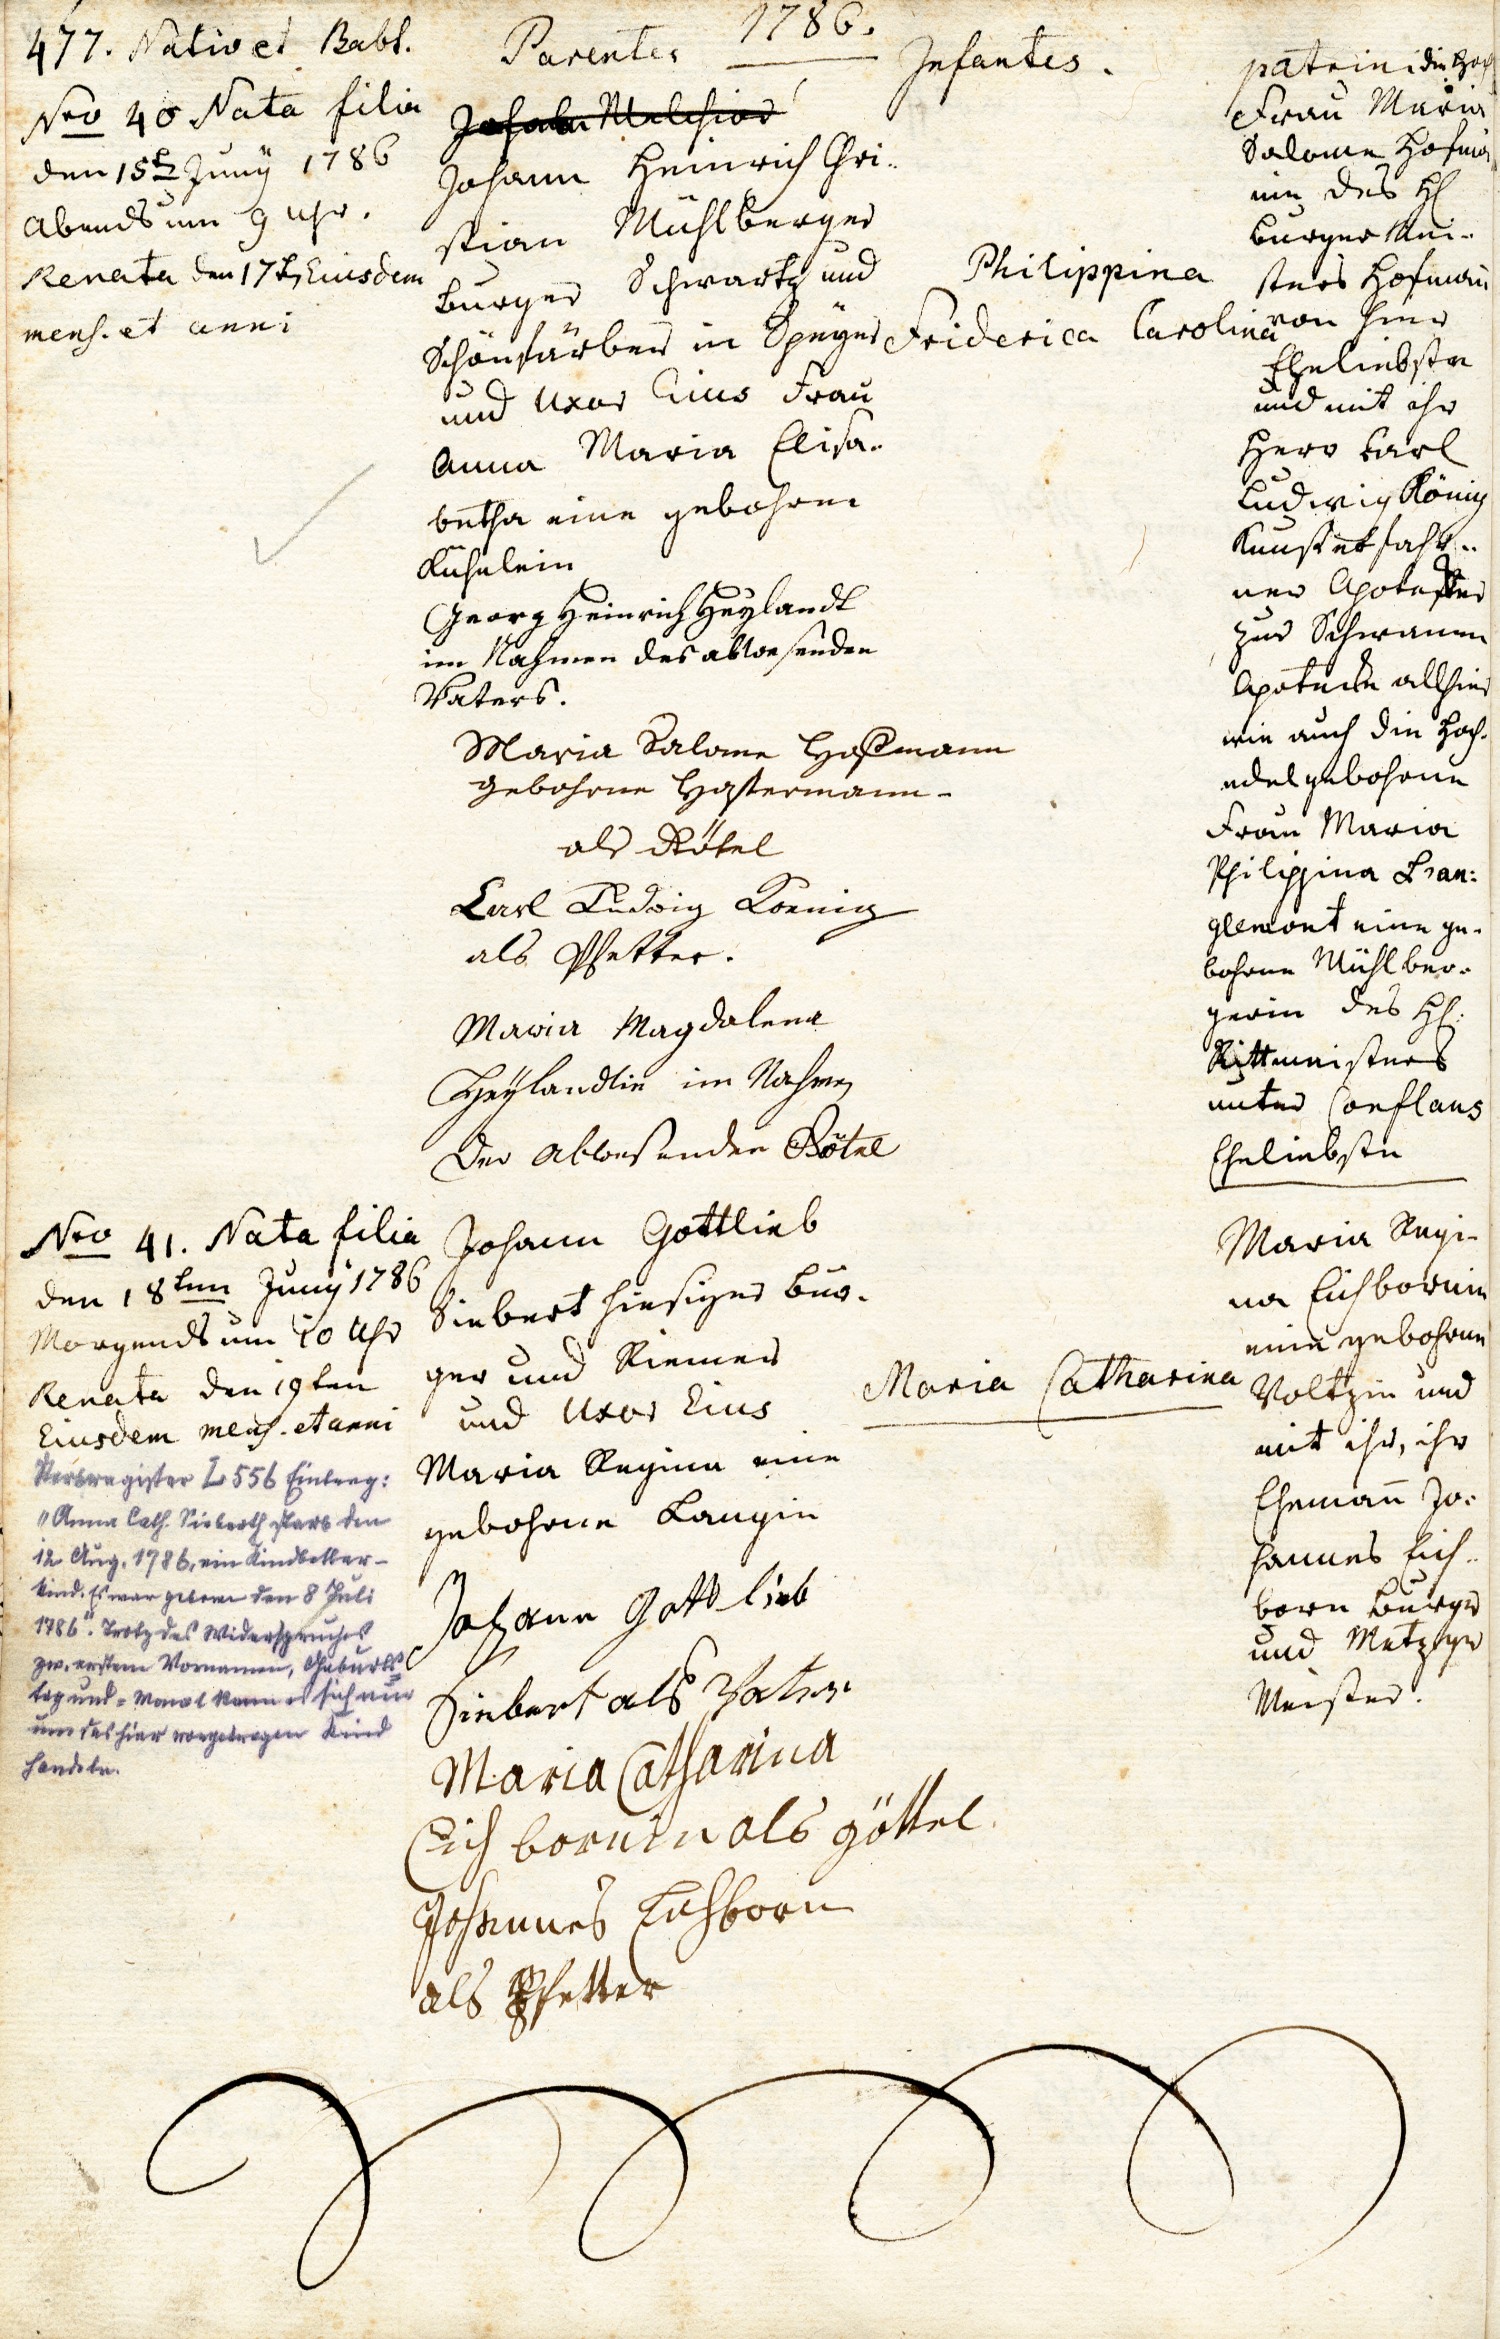 1786.
477. Nativ et Babt.
Parentes
Infantes.
patrini die Hoch
Nro 40 Nata filia
den 15t Juny 1786
Abends um 9 Uhr.
Renata den 17t Eiusdem
mens. et anni
Johann Melchior
Johann Heinrich Chri-
stian Mühlberger
burger Schwartz und
Schönfärber in Speyer
und Uxor Eius Frau
Anna Maria Elisa-
betha eine gebohrne
Kühnlein
Georg Heinrich Heylandt
im Nahmen des abwesenden
Vaters.
Maria Salome Hoffmann
gebohrne Hostermann
als Götel
Carl Ludwig Koenig
als Pfetter.
Maria Magdalena
Heylandtin im Nahmen
der Abwesenden Götel
Philippina
Friderica Carolina
Frau Maria
Salome Hofmän
nin des H
burger Mei-
sters Hofmañ
von hier
Eheliebste
und mit ihr
Herr Carl
Ludwig König
Kunsterfahr-
ner Apotecker
zur Schwanen
Apoteck allhier
wie auch die Hoch-
edelgebohrne
Frau Maria
Philippina
eine ge-
bohrne Mühlber-
gerin des H.
Rittmeisters
unter Conflans
Eheliebste
Nro 41. Nata filia
den 18ten Juny 1786
Morgends um 10 Uhr
Renata den 19ten
Eiusdem mens. et anni
Sterberegister L 556 Eintrag:
"Anna Cath. Sieberth starb den
12. Aug. 1786, ein Kindbetter-
kind. Es war geboren den 8 Juli
1786". Trotz des Widerspruches
zw. erstem Vornamen, Geburts-
tag und = Monat kann es sich nur
um das hier vorgetragen Kind
handeln.
Johann Gottlieb
Siebert hiesiger bur-
ger und Riemer
und Uxor Eius
Maria Regina eine
gebohrne Langin
Johann Gottlieb
Siebert als Vater
Maria Catharina
Eichbornin als göttel
Johannes Eichborn
als Pfetter
Maria Catharina
Maria Regi-
na Eichbornin
eine gebohrne
Voltzin und
mit ihr, ihr
Ehemañ Jo-
hannes Eich-
born Burger
und Metzger
Meister.